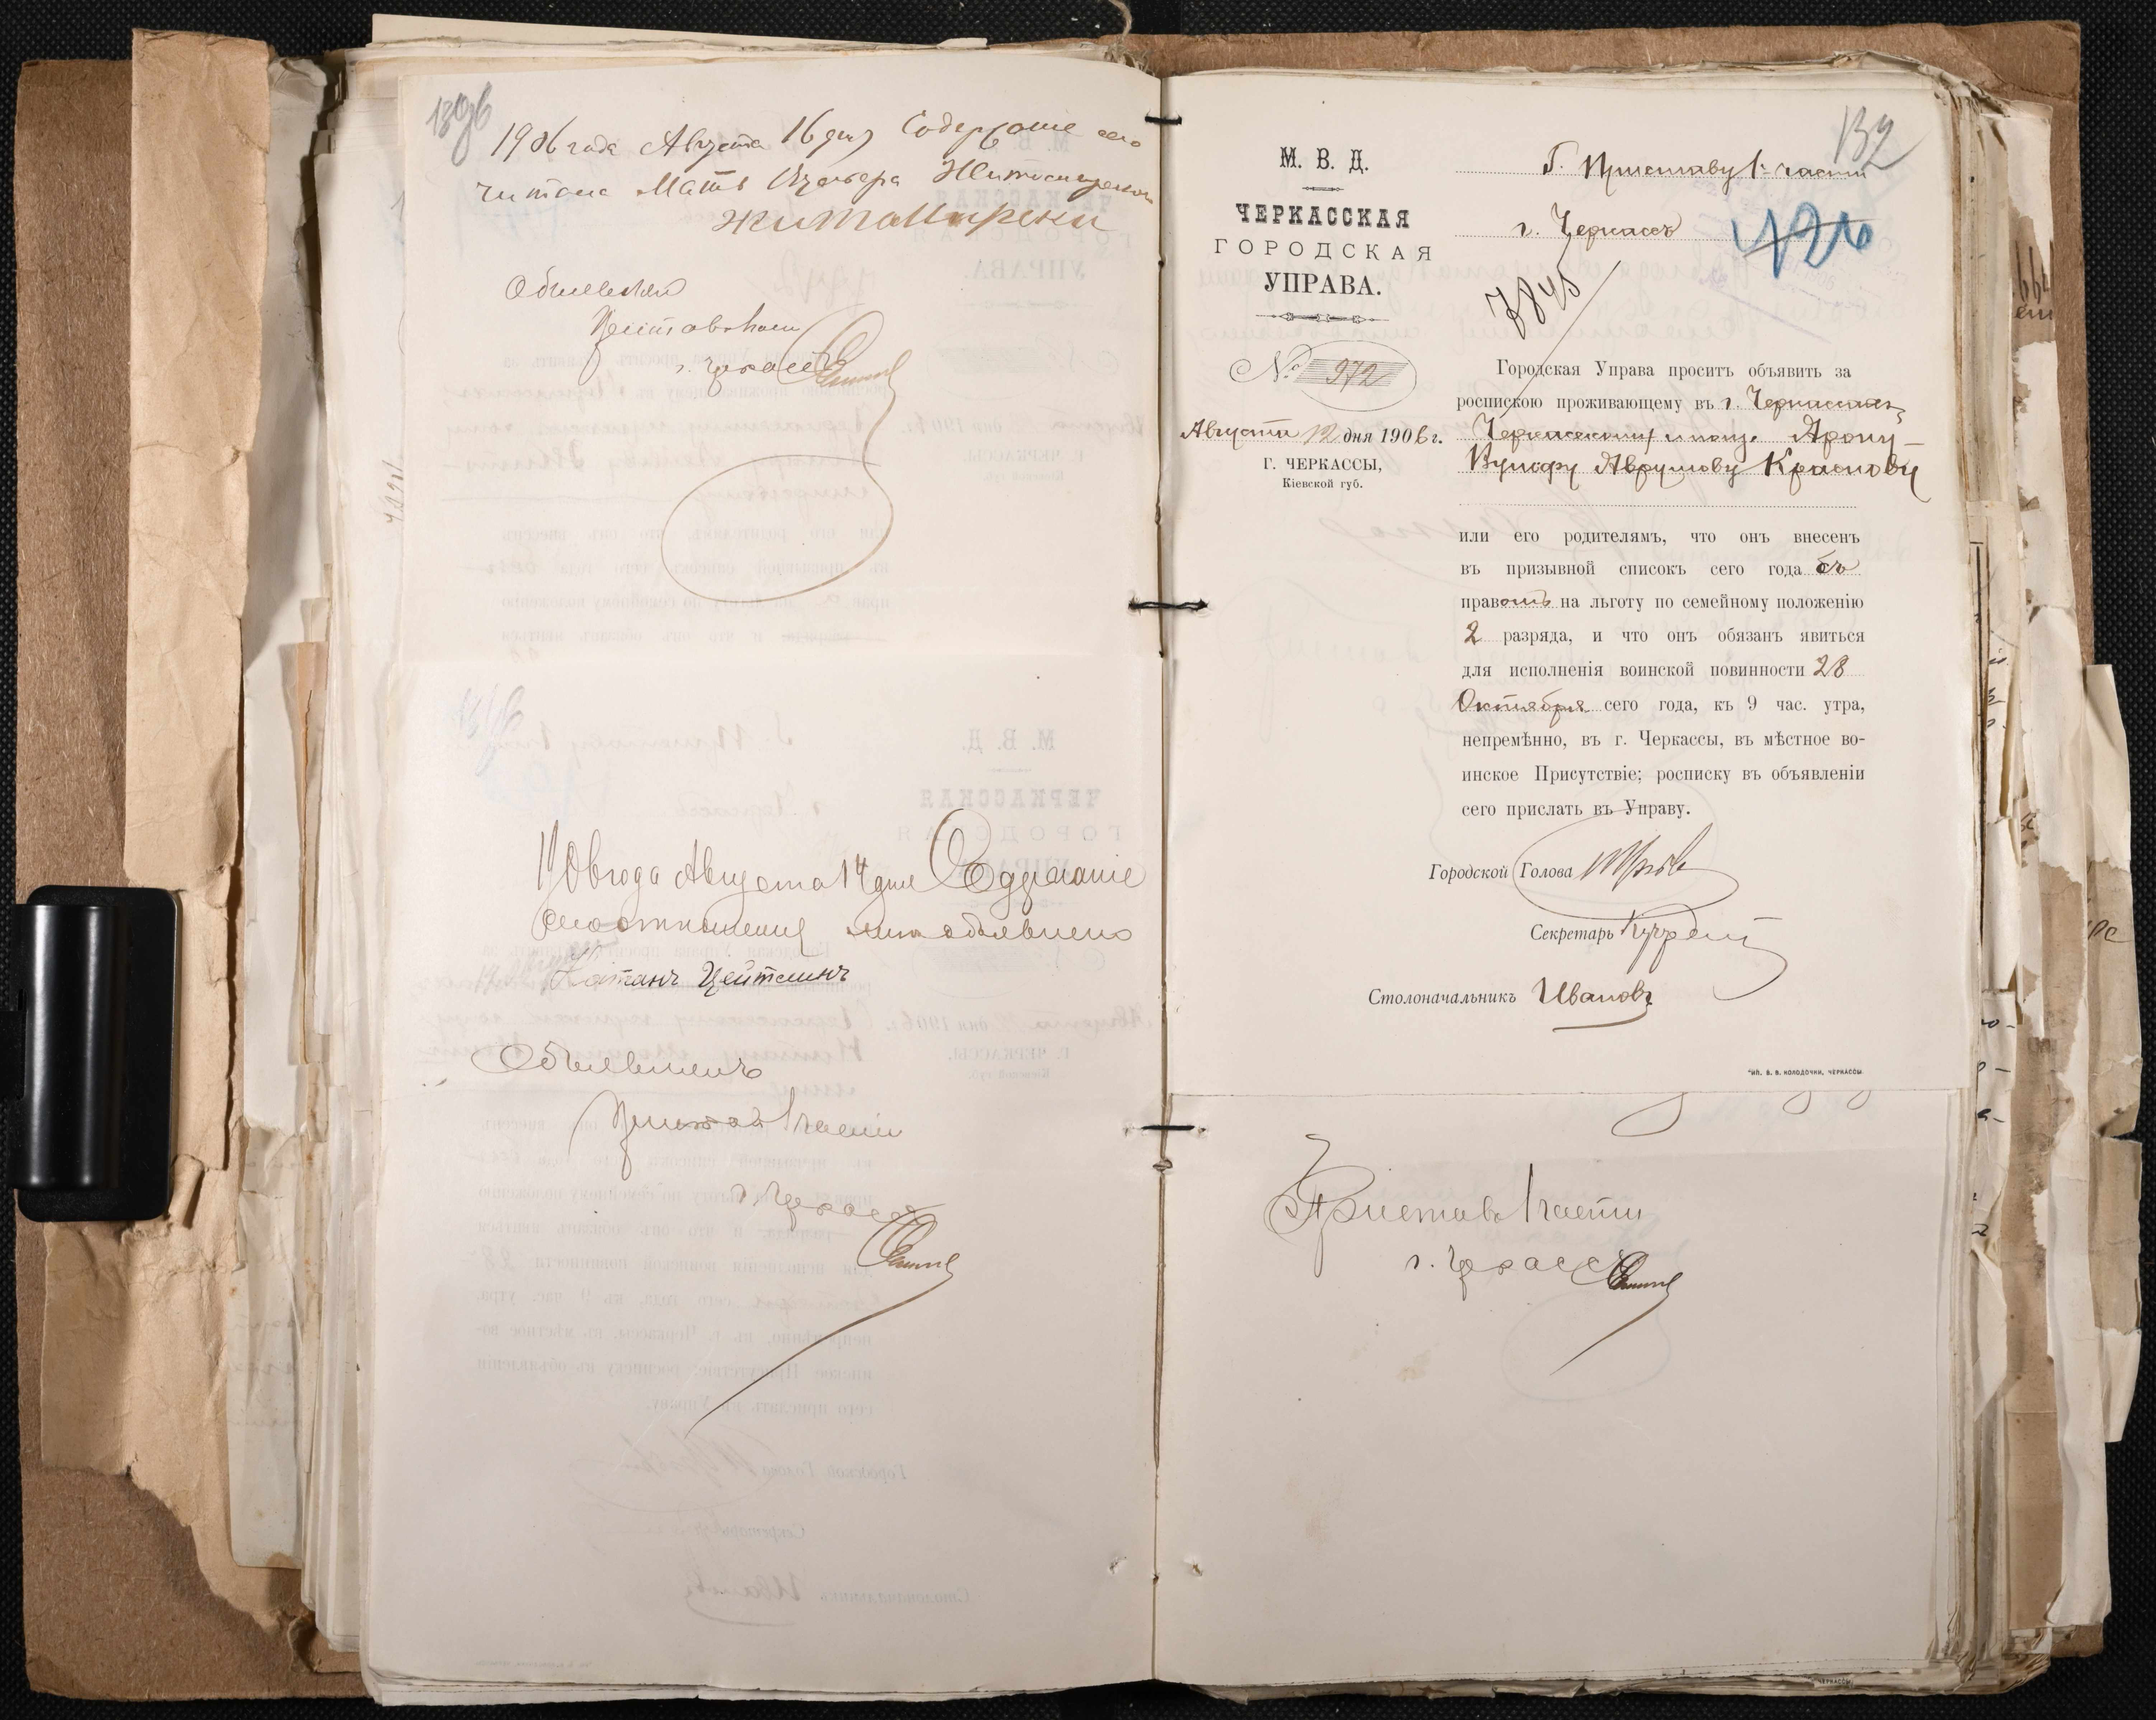 1906 года Августа 16 дня Содержание сего
читала Мать
Житомирски
Объявилъ
Приставъ 1 части
г. Черкассъ
1906 года Августа 14 дня Содержание
сего отношения мне объявлено
Натанъ Цейтлинъ
Объявилъ
Приставъ 1 части
г. Черкассъ
132
М. В. Д.
ЧЕРКАССКАЯ
ГОРОДСКАЯ
УПРАВА.
№ 972
Августа 12 дня 1906 г.
Г. ЧЕРКАССЫ,
Кіевской губ.
Г. Приставу 1-й части
г. Черкассъ
426
7845
Городская Управа проситъ объявить за
роспискою проживающему въ г. Черкассахъ
Черкасскому мѣщ. Арону-
Вульфу Аврумову Краснову
или его родителямъ, что онъ внесенъ
въ призывной списокъ сего года съ
правомъ на льготу по семейному положенію
2 разряда, и что онъ обязанъ явиться
для исполненія воинской повинности 28
Октября сего года, къ 9 час. утра,
непремѣнно, въ г. Черкассы, въ мѣстное во-
инское Присутствіе; росписку въ объявленіи
сего прислать въ Управу.
Городской Голова
Секретарь
Столоначальникъ Ивановъ
ТИП. В. В. КОЛОДОЧКИ, ЧЕРКАССЫ
Приставъ 1 части
г. Черкассъ